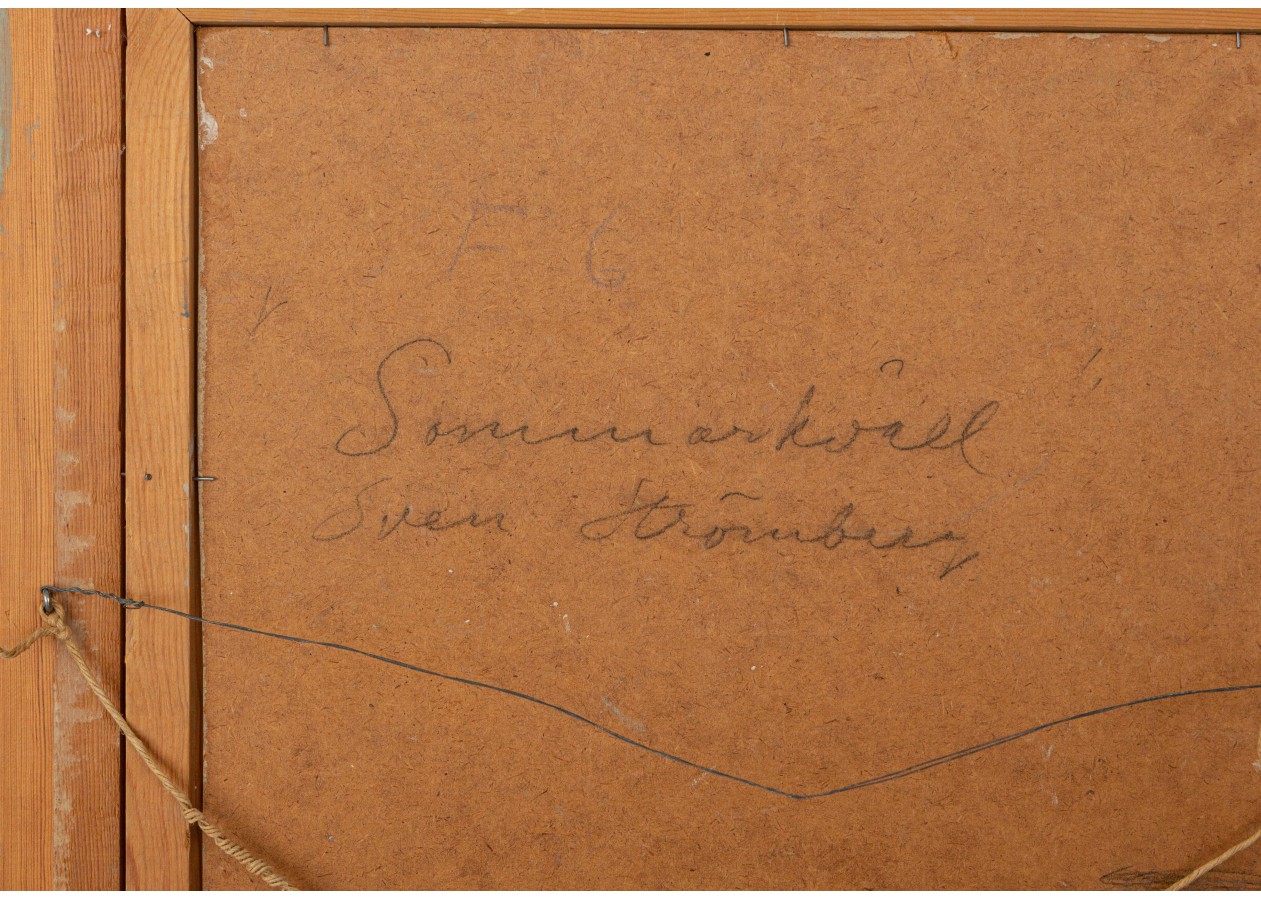 F 6
Sommarkväll
Sven Strömberg